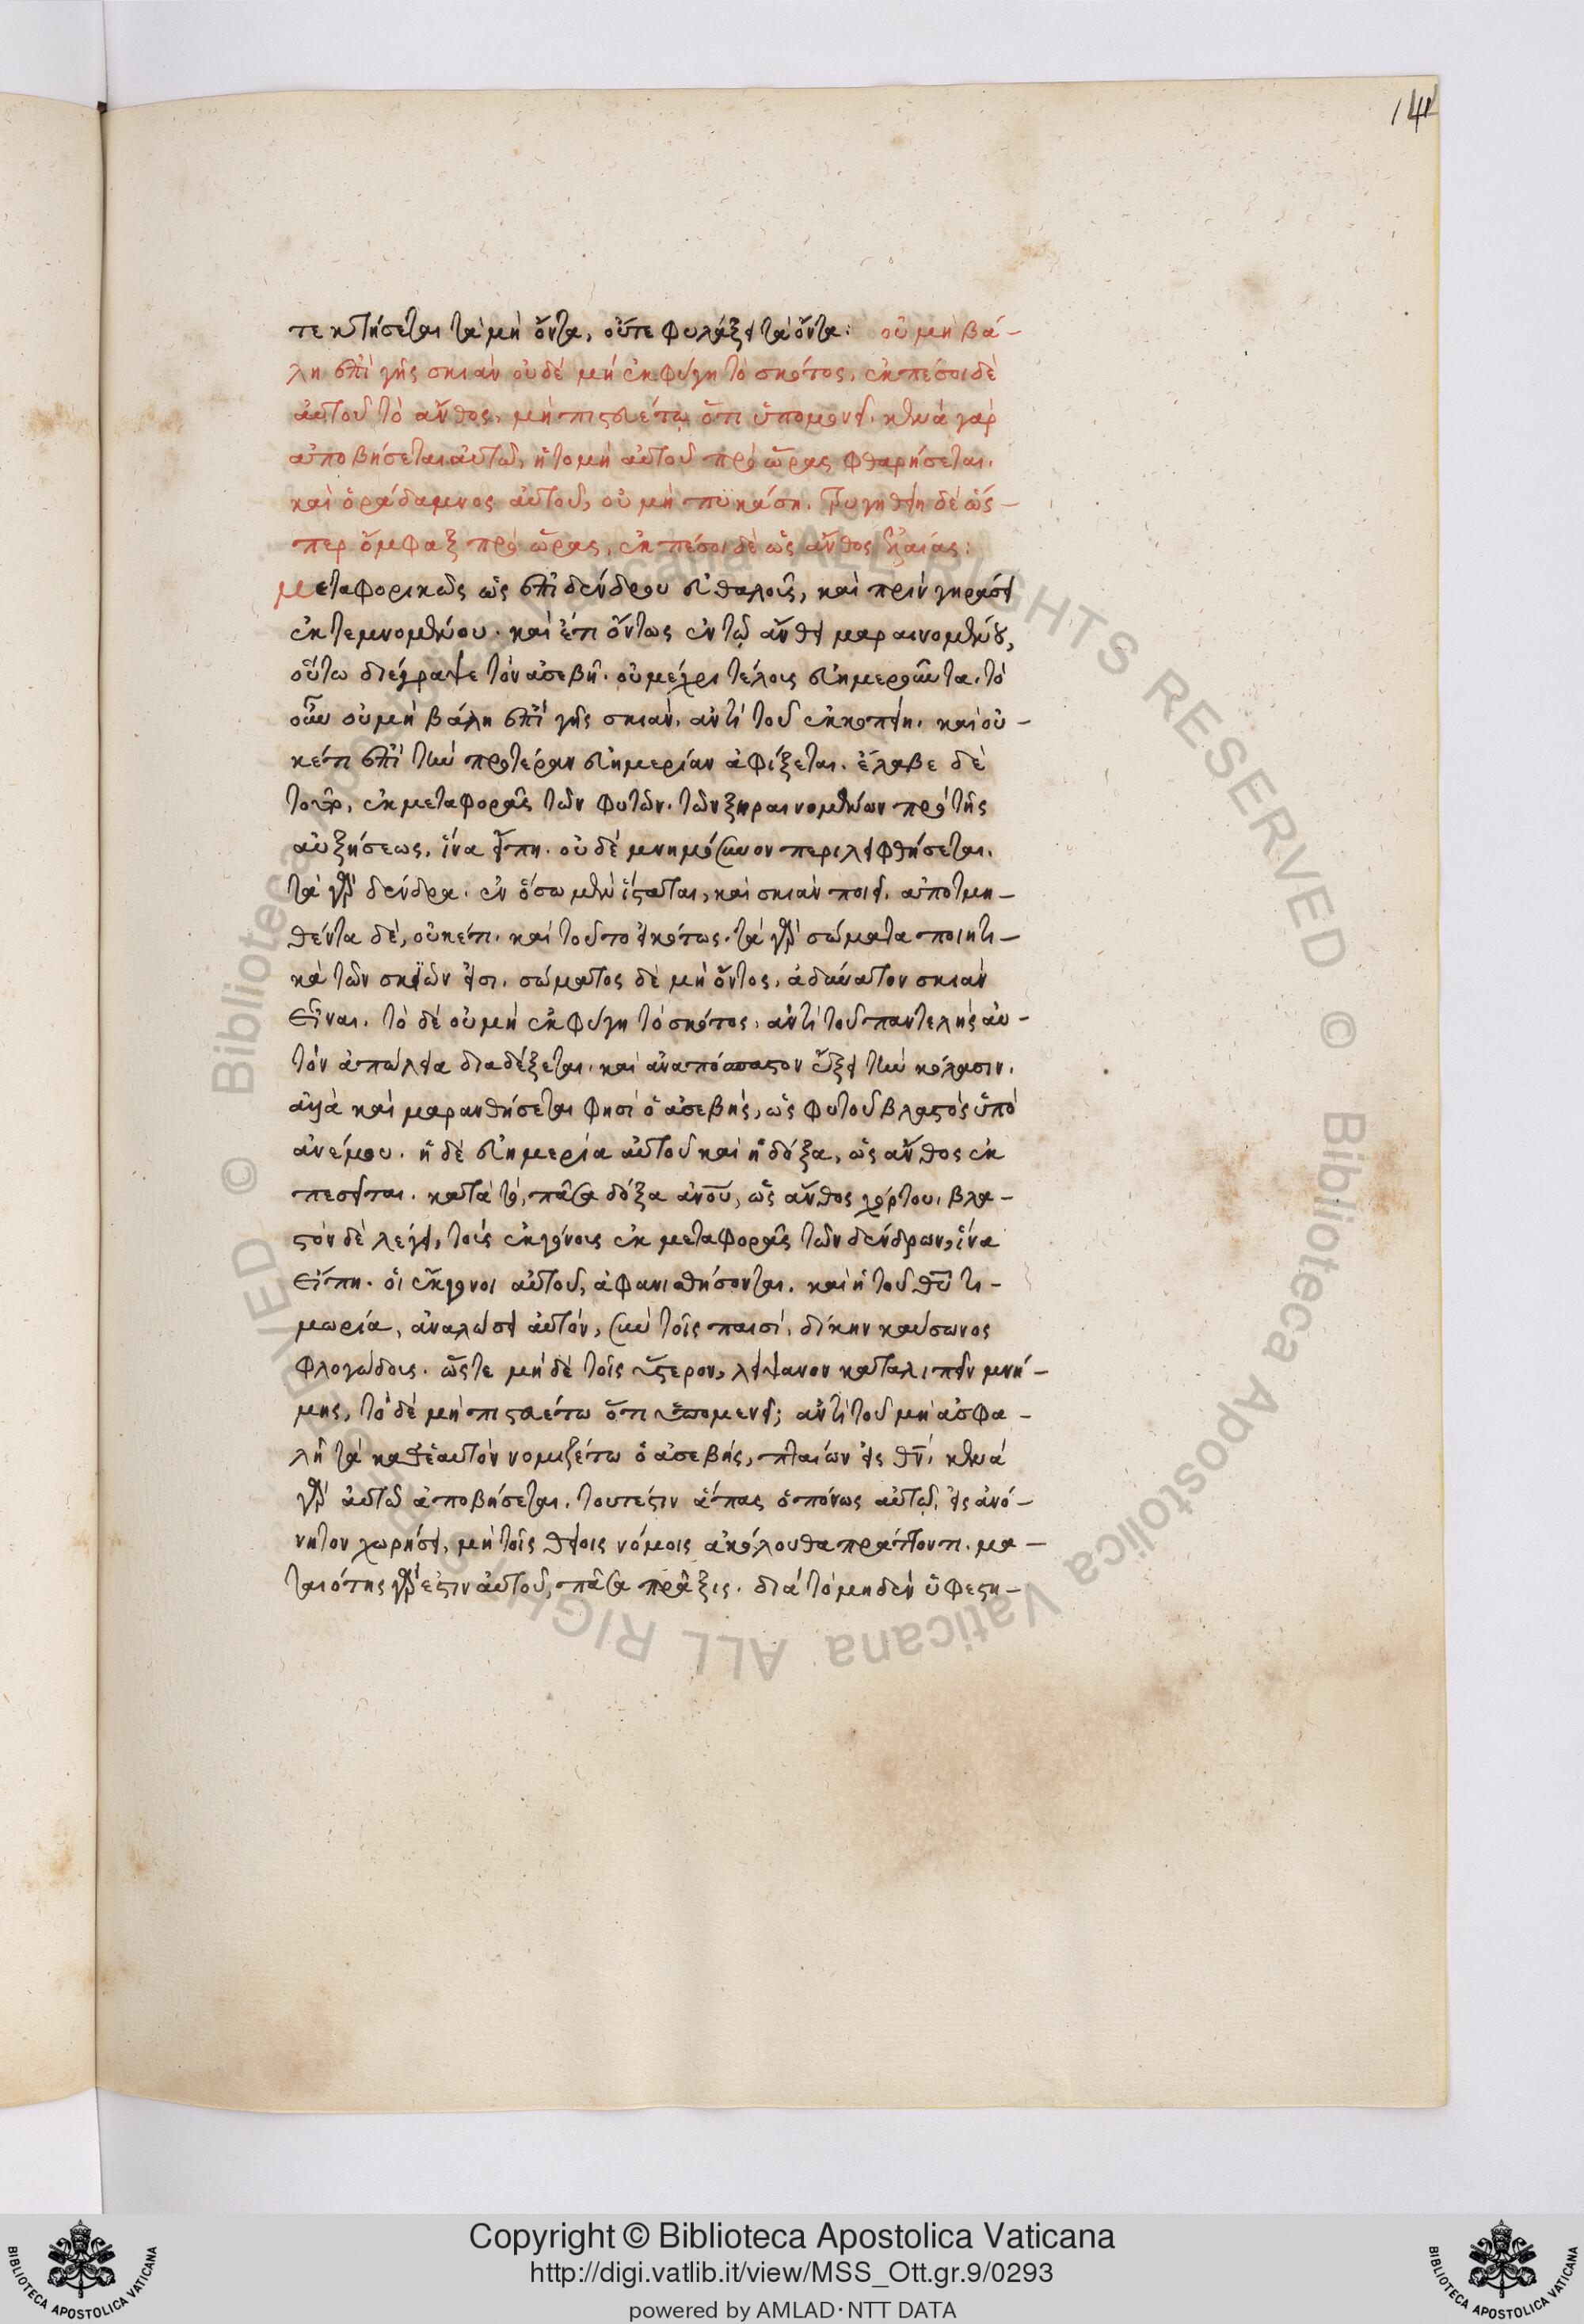 141
τε κτήσεται τὰ μὴ ὄντα, οὔτε φυλάξει τὰ ὄντα: οὐ μὴ βά-
λη ἐπὶ γῆς σκιὰν οὐδὲ μή ἐκφύγη τὸ σκότος. ἐκπέσοι δὲ
αὐτοῦ τὸ ἄνθος, μὴ πιστευέτω ὅτι ὑπομενεῖ. κενὰ γὰρ
ἀποβήσεται αὐτῶ, ἡ τομὴ αὐτοῦ πρὸ ὥρας φθαρήσεται.
καὶ ὁ ράδαμνος αὐτοῦ, οὐ μὴ πϋκάση. τρυγηθείη δὲ ὡσ-
περ ὄμφαξ πρὸ ὥρας, ἐκπέσοι δὲ ὡς ἄνθος ἐλαίας:
Μεταφορικῶς ὡς ἐπὶ δένδρου εὐθαλοῦς, καὶ πρὶν γηράσει
ἐκτεμνομένου. καὶ ἔτι ὄντως ἐν τῶ ἄνθει μαραινομένου,
οὕτω διέγραψε τὸν ἀσεβῆ. οὐ μέχρι τέλους εὐημεροῦντα. τὸ
οὖν οὐ μὴ βάλη ἐπὶ γῆς σκιάν. ἀντὶ τοῦ ἐκκοπείη. καὶ οὐ-
κέτι ἐπὶ τὴν προτέραν εὐημερίαν ἀφίξεται. ἔλαβε δὲ
τοῦτο, ἐκ μεταφορᾶς τῶν φυτῶν. τῶν ξηραινομένων πρὸ τῆς
αὐξήσεως. ἵνα εἴπη. οὐδὲ μνημόσυνον περιλειφθήσεται.
τὰ γὰρ δένδρα. ἐν ὅσω μὲν ἵσταται, καὶ σκιὰν ποιεῖ. ἀποτμη-
θέντα δὲ, οὐκέτι. καὶ τοῦτο εἰκότως. τὰ γὰρ σώματα ποιητι-
κὰ τῶν σκιῶν εἰσι. σώματος δὲ μὴ ὄντος, ἀδύνατον σκιὰν
εἶναι. τὸ δὲ οὐ μὴ ἐκφύγη τὸ σκότος, ἀντὶ τοῦ παντελὴς αὐ-
τὸν ἀπώλεια διαδέξεται. καὶ ἀναπόσπαστον ἕξει τὴν κόλασιν.
ἀλλὰ καὶ μαρανθήσεται φησὶ ὁ ἀσεβὴς, ὡς φυτοῦ βλαστὸς ὑπὸ
ἀνέμου. ἡ δὲ εὐημερία αὐτοῦ καὶ ἡ δόξα, ὡς ἄνθος ἐκ
πεσεῖται. κατὰ τὸ, πᾶσα δόξα ἀνου, ὡς ἄνθος χόρτου. βλα-
στὸν δὲ λέγει, τοὺς ἐκγόνους ἐκ μεταφορᾶς τῶν δένδρων, ἵνα
εἴπη. οἱ ἔκγονοι αὐτοῦ, ἀφανισθήσονται. καὶ ἡ τοῦ θυ τι-
μωρία, ἀναλώσει αὐτὸν, σὺν τοῖς παισί, δίκην καύσωνος
φλογώδους. ὥστε μὴ δὲ τοῖς ὕστερον, λείψανον καταλιπεῖν μνή-
μης, τὸ δὲ μὴ πιστευέτω ὅτι ὑπομενεῖ; ἀντὶ τοῦ μὴ ἀσφα-
λῆ τὰ καθ' ἑαυτὸν νομιζέτω ὁ ἀσεβὴς, πταίων εἰς θν, κενὰ
γὰρ αὐτῶ ἀποβήσεται. τουτέστιν ἅπας ὁ πόνος αὐτῶ, εἰς ἀνό-
νητον χωρήσει, μὴ τοῖς θείοις νόμοις ἀκόλουθα πράττοντι. μα-
ταιότης γὰρ ἐστιν αὐτοῦ, πᾶσα πρᾶξις. διὰ τὸ μηδὲν ὑφεστη-
Copyright © Biblioteca Apostolica Vaticana
http://digi.vatlib.it/view/MSS_Ott.gr.9/0293
powered by AMLAD·NTT DATA
BIBLIOTECA APOSTOLICA VATICANA
BIBLIOTECA APOSTOLICA VATICANA
© Biblioteca Apostolica Vaticana ALL RIGHTS RESERVED
© Biblioteca Apostolica Vaticana ALL RIGHTS RESERVED